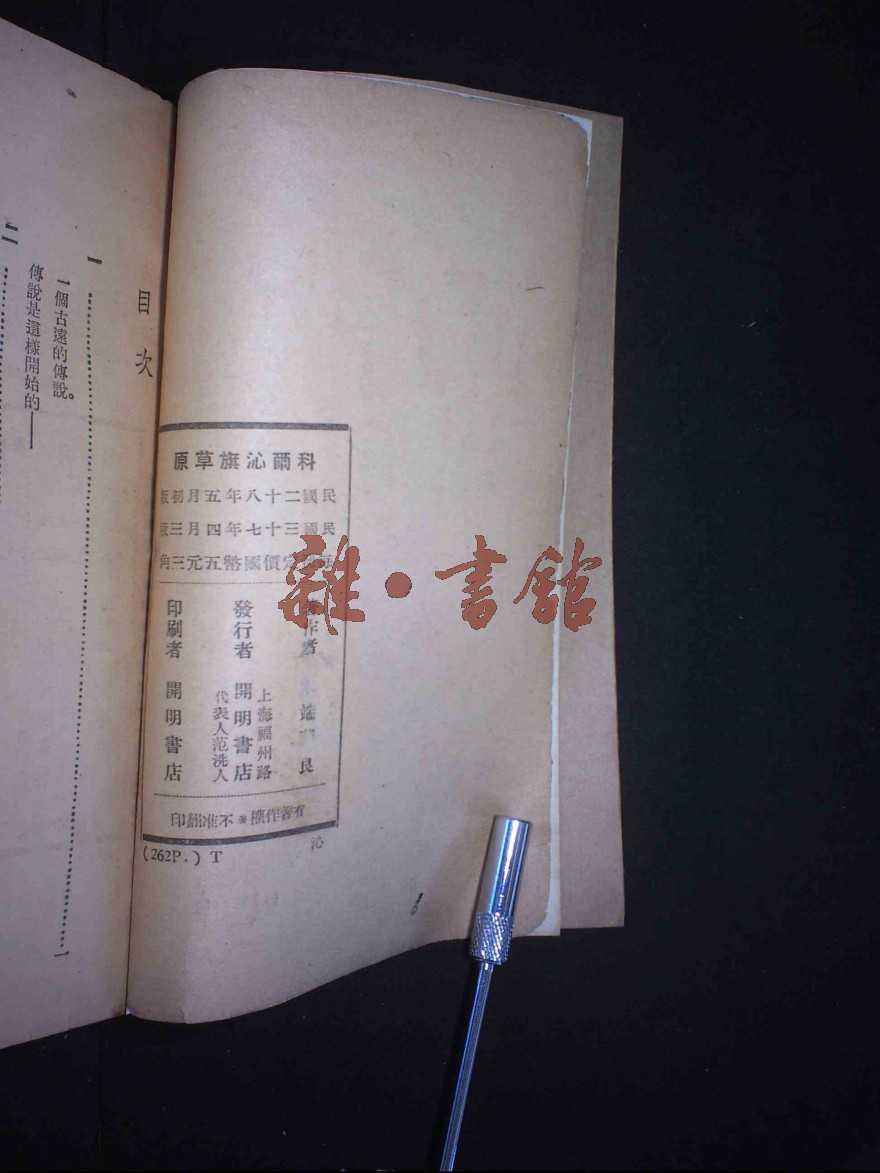 科爾沁旗草原
民國二十八年五月初版
民國三十七年四月三版
定價國幣五元三角
著作者 端 良
上海福州路
發行者 開明書店
代表人范洗人
印刷者 開明書店
有著作權 不准翻印
(262P.) T
沁
目次
一 一
一個古遠的傳說。
傳說是這樣開始的——
二
雜·書館